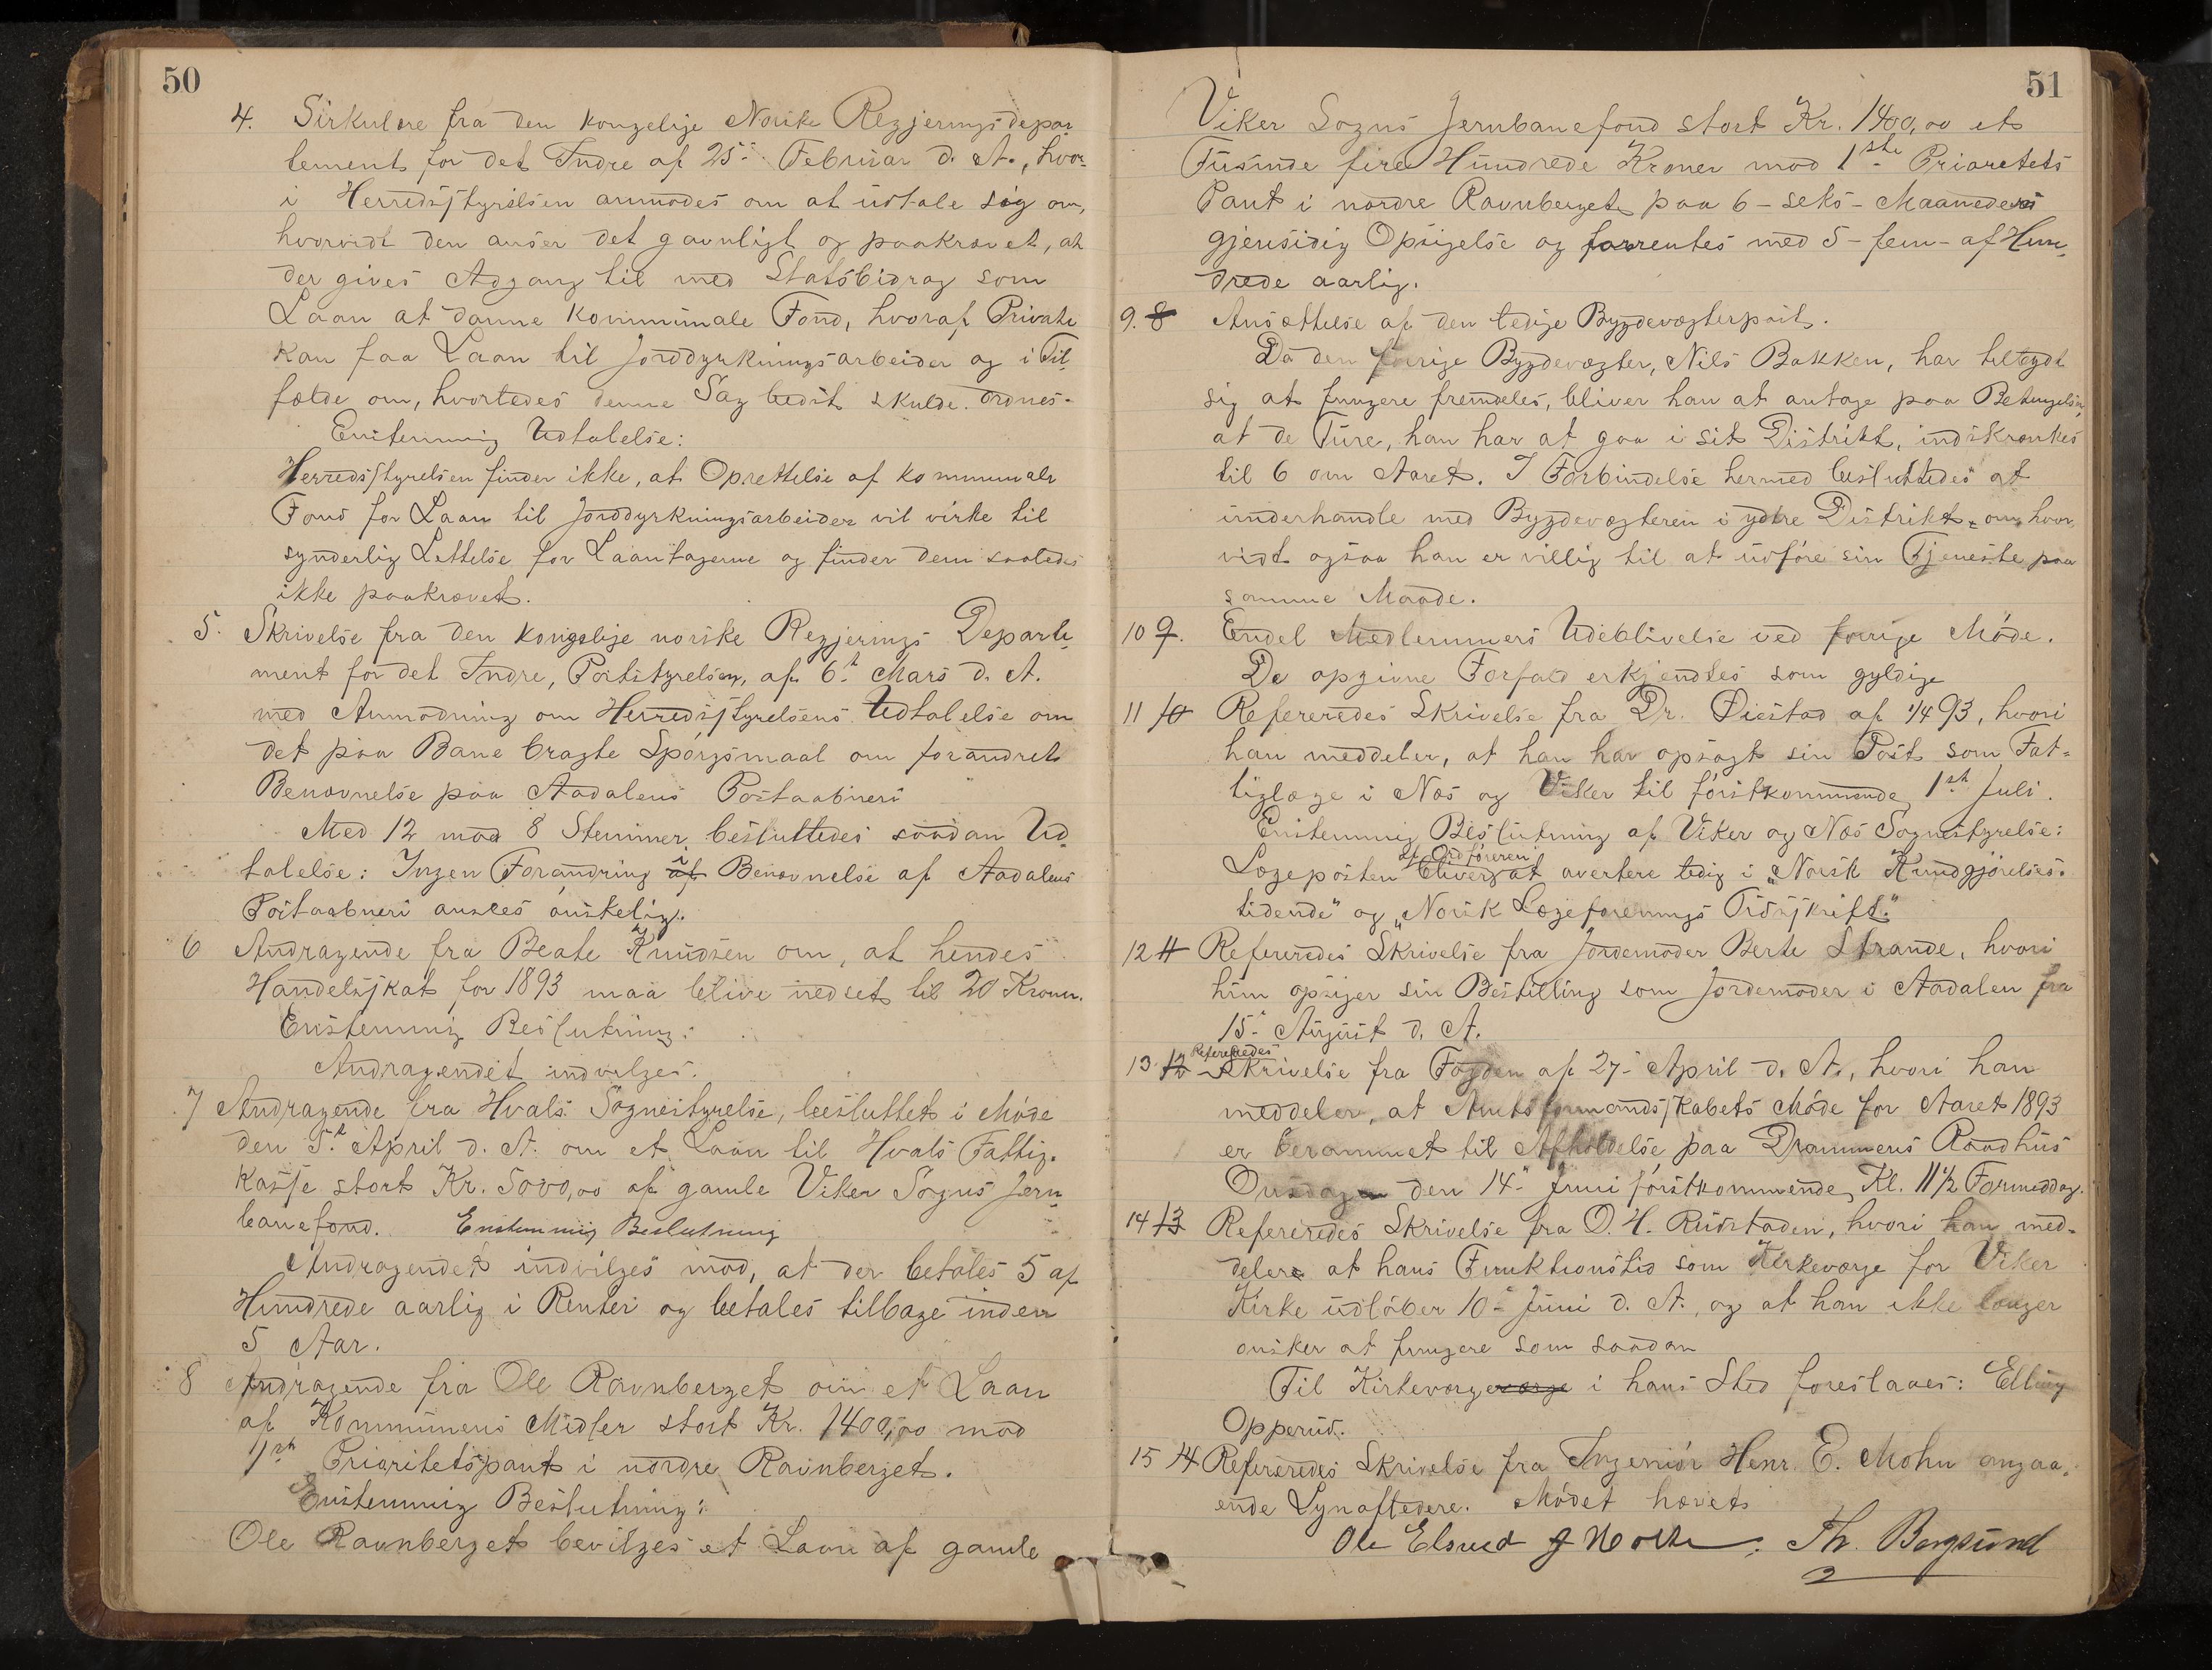 50
4. Sirkulære fra den kongelige Norske Regjeringsdepar
tement for det Indre af 25de Februar d. A., hvor-
i Herredsstyrelsen anmodes om at udtale sig om,
hvorvidt den anser det gavnligt og paakrævet, at
der gives Adgang til med Statsbidrag som
Laan at danne kommunale Fond, hvoraf Private
kan faa Laan til Jorddyrkningsarbeider og i Til-
fælde om, hvorledes denne Sag bedst skulde ordnes.
Enstemmig Udtalelse:
Herredsstyrelsen finder ikke, at Oprettelse af kommunale
Fond for Laan til Jorddyrkningsarbeider vil virke til
synderlig Lettelse for Laantagerne og finder dem saaledes
ikke paakrævet.
5. Skrivelse fra den kongelige norske Regjerings Departe-
ment for det Indre, Poststyrelsen, af 6t Mars d. A.
med Anmodning om Herredsstyrelsens Udtalelse om
det paa Bane bragte Spørgsmaal om forandret
Benævnelse paa Aadalens Postaabneri
Med 12 mod 8 Stemmer besluttedes saadan Ud-
talelse: Ingen Forandring af i Benævnelse af Aadalens
Postaabneri ansees ønskelig.
6 Andragende fra Beate Knudsen om, at hendes
Handelsskat for 1893 maa blive nedset til 20 Kroner.
Enstemmig Beslutning:
Andragendet indvilges.
7 Andragende fra Hvals Sognestyrelse, besluttet i Møde
den 5t April d. A. om et Laan til Hvals Fattig-
kasse stort Kr. 5000,00 af gamle Viker Sogns Jern-
banefond. Enstemmig Beslutning
Andragendet indvilges mod, at der betales 5 af
Hundrede aarlig i Renter og betales tilbage inden
5 Aar.
8 Andragende fra Ole Ravnberget om et Laan
af Kommunens Midler stort Kr. 1400,00 mod
1ste Prioritetspant i nordre Ravnberget.
Enstemmig Beslutning:
Ole Ravnberget bevilges et Laan af gamle
51
Viker Sogns Jernbanefond stort Kr. 1400,00 et
Tusinde fire Hundrede Kroner mod 1ste Prioretets
Pant i nordre Ravnberget paa 6 - seks - Maaneders
gjensidig Opsigelse og forrentes med 5 - fem - af Hun-
drede aarlig.
9. 8 Ansættelse af den ledige Bygdevægterpost.
Da den forrige Bygdevægter, Nils Bakken, har tilbydt
sig at fungere fremdeles, bliver han at antage paa Betingelse,
at de Ture, han har at gaa i sit Distrikt, indskrænkes
til 6 om Aaret. I Forbindelse hermed besluttedes at
underhandle med Bygdevægteren i ydre Distrikt om, hvor-
vidt ogsaa han er villig til at udføre sin Tjeneste paa
samme Maade.
10 9. Endel Medlemmers Udeblivelse ved forrige Møde.
De opgivne Forfald erkjendtes som gyldige
11 10 Refereredes Skrivelse fra Dr. Diestad af 1/4 93, hvori
han meddeler, at han har opsagt sin Post som Fat-
tiglæge i Næs og Viker til førstkommende 1ste Juli.
Enstemmig Beslutning af Viker og Næs Sognestyrelse:
af Ordføreren
Lægeposten bliver at avertere ledig i "Norsk Kundgjørelses-
tidende" og "Norsk Lægeforenings Tidsskrift."
12 11 Refereredes Skrivelse fra Jordemoder Berte Strande, hvori
hun opsiger sin Bestilling som Jordemoder i Aadalen fra
15de August d. A.
Refereredes
13 12 Skrivelse fra Fogden af 27de April d. A., hvori han
meddeler, at Amtsformandskabets Møde for Aaret 1893
er berammet til Afholdelse paa Drammens Raadhus
Onsdagen den 14de Juni førstkommende, Kl. 11½ Formiddag.
14 13 Refereredes Skrivelse fra O. H. Rudstaden, hvori han med-
deler at hans Funktionstid som Kirkeværge for Viker
Kirke udløber 10de Juni d. A., og at han ikke længer
ønsker at fungere som saadan
Til Kirkeværgeværge i hans Sted foreslaaes: Elling
Opperud.
15 14 Refereredes Skrivelse fra Ingeniør Henr. E. Mohn angaa-
ende Lynafledere. Mødet hævet
Ole Elsrud Th. Bergsund